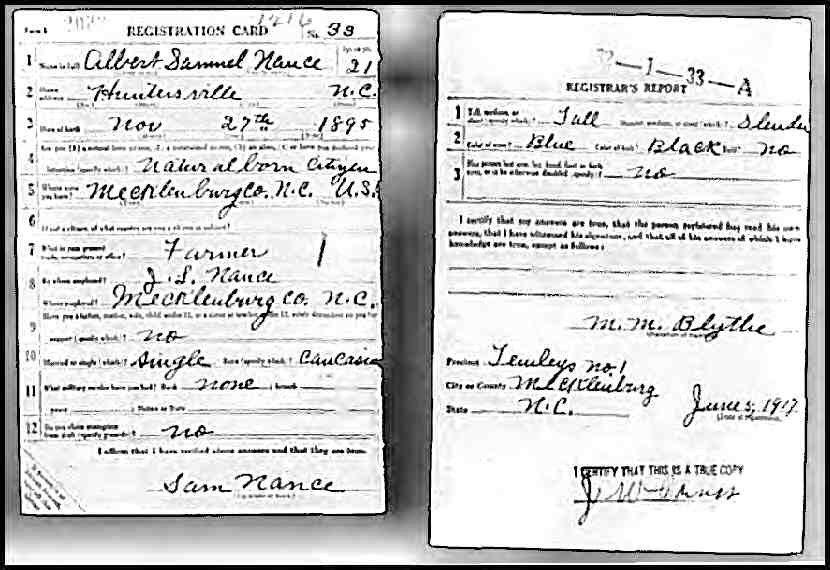 Form 1
REGISTRATION CARD No. 33
1 Name in full Albert Samuel Nance Age in yrs. 21
2 Home address Huntersville N.C.
3 Date of birth Nov 27th 1895
4 Are you (1) a natural-born citizen, (2) a naturalized citizen, (3) an alien, (4) or have you declared your
intention (specify which)? Natural born Citizen
5 Where were you born? Mecklenburg Co. N.C. U.S.
6 If not a citizen, of what country are you a citizen or subject?
7 What is your present trade, occupation, or office? Farmer 1
8 By whom employed? J. S. Nance
Where employed? Mecklenburg Co. N.C.
9 Have you a father, mother, wife, child under 12, or a sister or brother under 12, solely dependent on you for
support (specify which)? no
10 Married or single (which)? Single Race (specify which)? Caucasia
11 What military service have you had? Rank none ; branch
years ; Nation or State
12 Do you claim exemption from draft (specify grounds)? no
I affirm that I have verified above answers and that they are true.
Sam Nance
32-1-33-A
REGISTRAR'S REPORT
1 Tall, medium, or short (specify which)? Tall Slender, medium, or stout (which)? Slender
2 Color of eyes? Blue Color of hair? Black Bald? No
3 Has person lost arm, leg, hand, foot, or both eyes, or is he otherwise disabled (specify)? no
I certify that my answers are true, that the person registered has read his own
answers, that I have witnessed his signature, and that all of his answers of which I have
knowledge are true, except as follows:
M. M. Blythe
(Signature of Registrar)
Precinct no. 1
City or County Mecklenburg
State N.C. June 5, 1917
(Date of Registration)
I CERTIFY THAT THIS IS A TRUE COPY